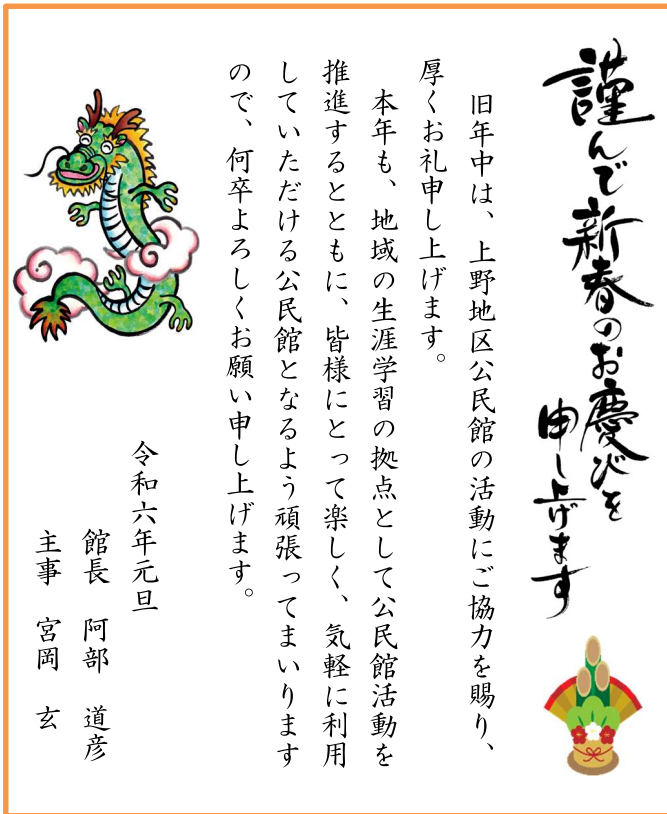 謹んで新春のお慶びを
申し上げます
旧年中は、上野地区公民館の活動にご協力を賜り、
厚くお礼申し上げます。
本年も、地域の生涯学習の拠点として公民館活動を
推進するとともに、皆様にとって楽しく、気軽に利用
していただける公民館となるよう頑張ってまいります
ので、何卒よろしくお願い申し上げます。
令和六年元旦
館長 阿部 道彦
主事 宮岡 玄